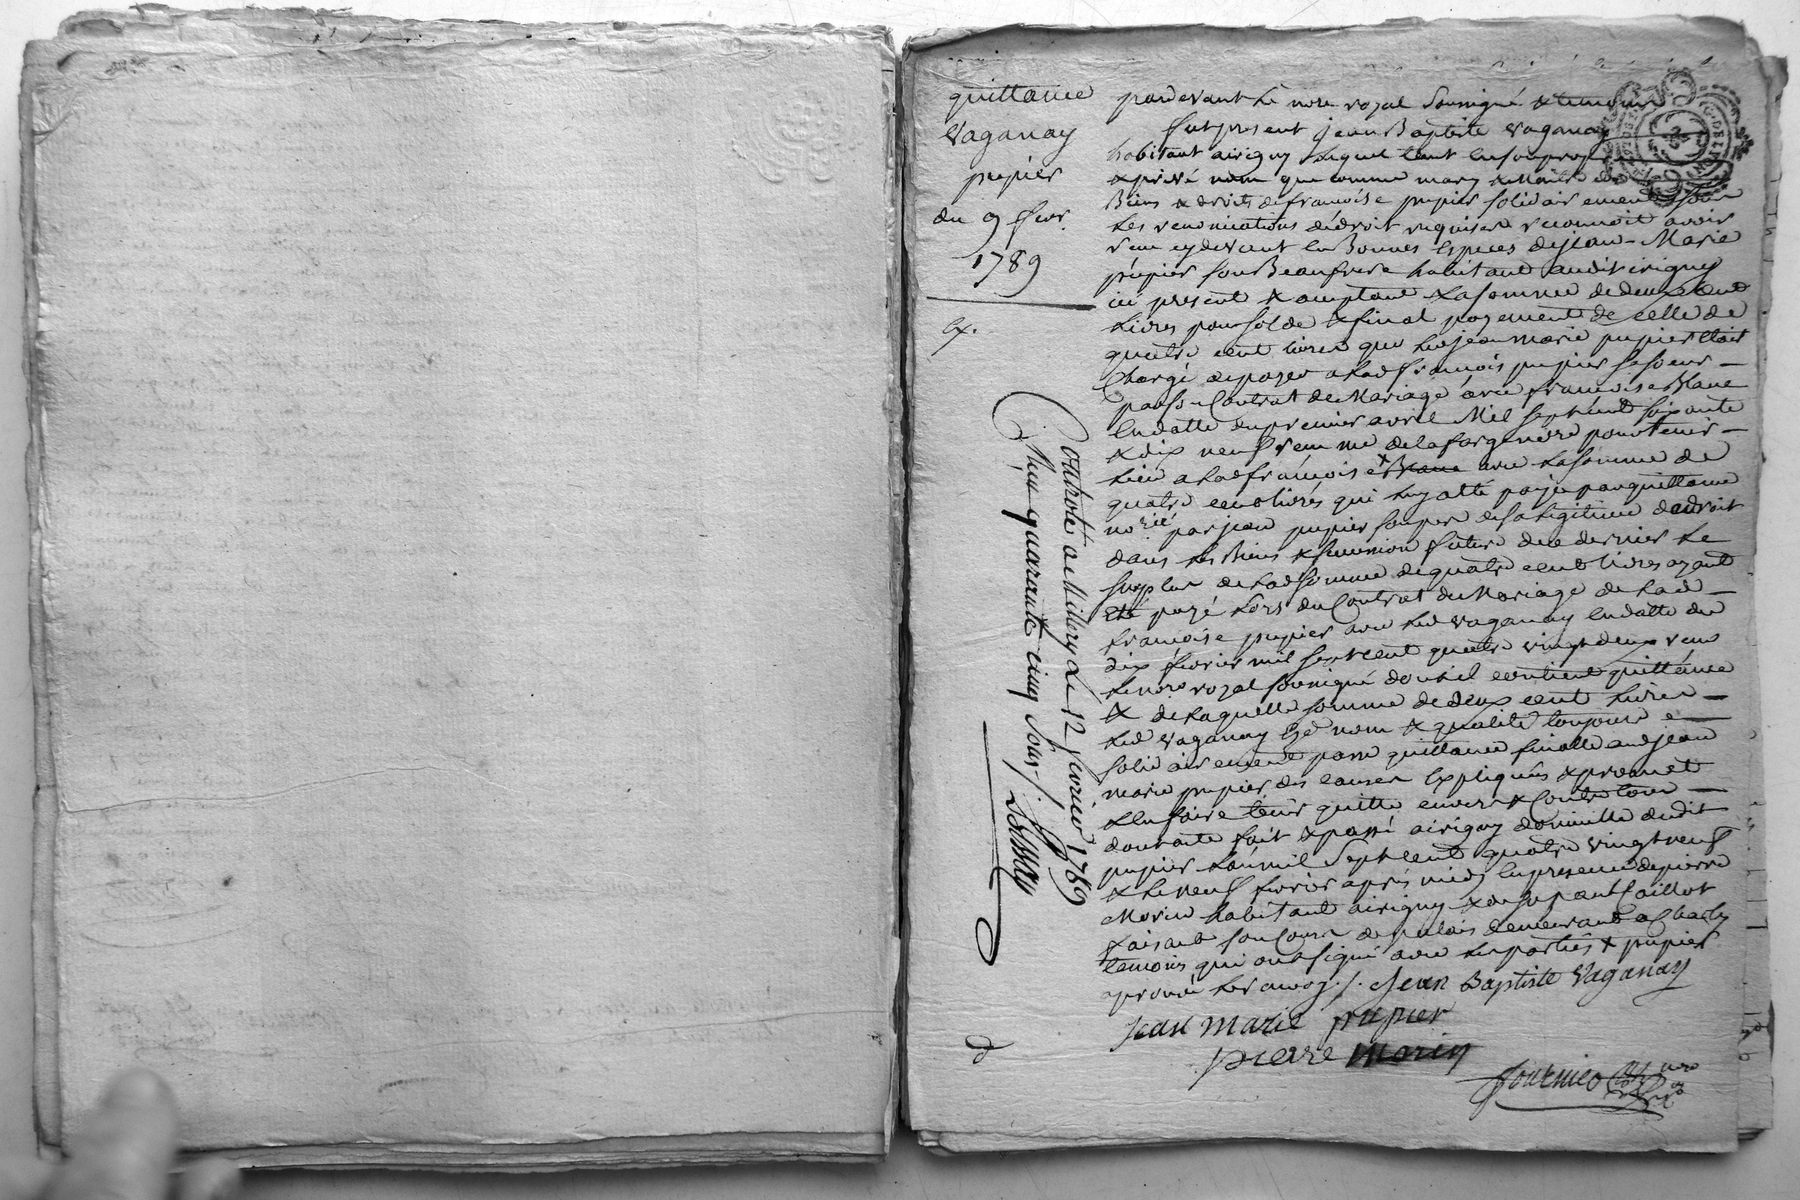 quittance
Vaganay
pupier
du 9 fevr.
1789
Ex.
pardevant le nore royal soussigné & temoins
fut present jean Baptiste Vaganay
habitant airigny lequel tant en son propre
& privé nom que comme mary & maitre des
Biens & droits de francoise pupier solidairement sous
les renonciations de droit requises reconnoit avoir
reçu cy devant en Bonnes Especes de jean-Marie
pupier son Beaufrere habitant audit irigny
ici present & acceptant la somme de deux cent
livres pour solde & final payement de celle de
quatre cent livres que led jean marie pupier étoit
Chargé de payer a lad francoise pupier sa soeur –
par son Contrat de Mariage avec francoise Blanc
En datte du premier avril Mil sept cent soixante
& dix neuf reçu me delaforge nore pour tenir –
lieu a lad francoise avec la somme de
quatre cent livres qui luy a été payée par quittance
no.riée par jean pupier son pere de sa legitime de droit
dans les Biens & succession future de ce dernier le
surplus de lad somme de quatre cent livres ayant
été payé lors du Contrat de Mariage de lad –
francoise pupier avec led vaganay En datte du
dix fevrier mil sept cent quatre vingt deux reçu
le nore royal soussigné dont il contient quittance
& de laquelle somme de deux cent livres –
led vaganay Esd nom & qualité toujours –
solidairement passe quittance finalle aud jean
marie pupier des causes Expliquées & promet
l'en faire tenir quitte envers & Contre tous –
dont acte fait & passé airigny domicille dudit
pupier l'an mil sept cent quatre vingt neuf
& le neuf fevrier après midy En presence de pierre
Morin habitant airigny & de Caillot
faisant son Cours de palais demeurant a Charly
temoins qui ont signé avec les parties & pupier
aprouvé le renvoy ./. Jean Baptiste Vaganay
Jean Marie pupier
pierre Morin
fournier
Controlé a Millery Le 12 fevrier 1789
Reçu quarante cinq sous ./.